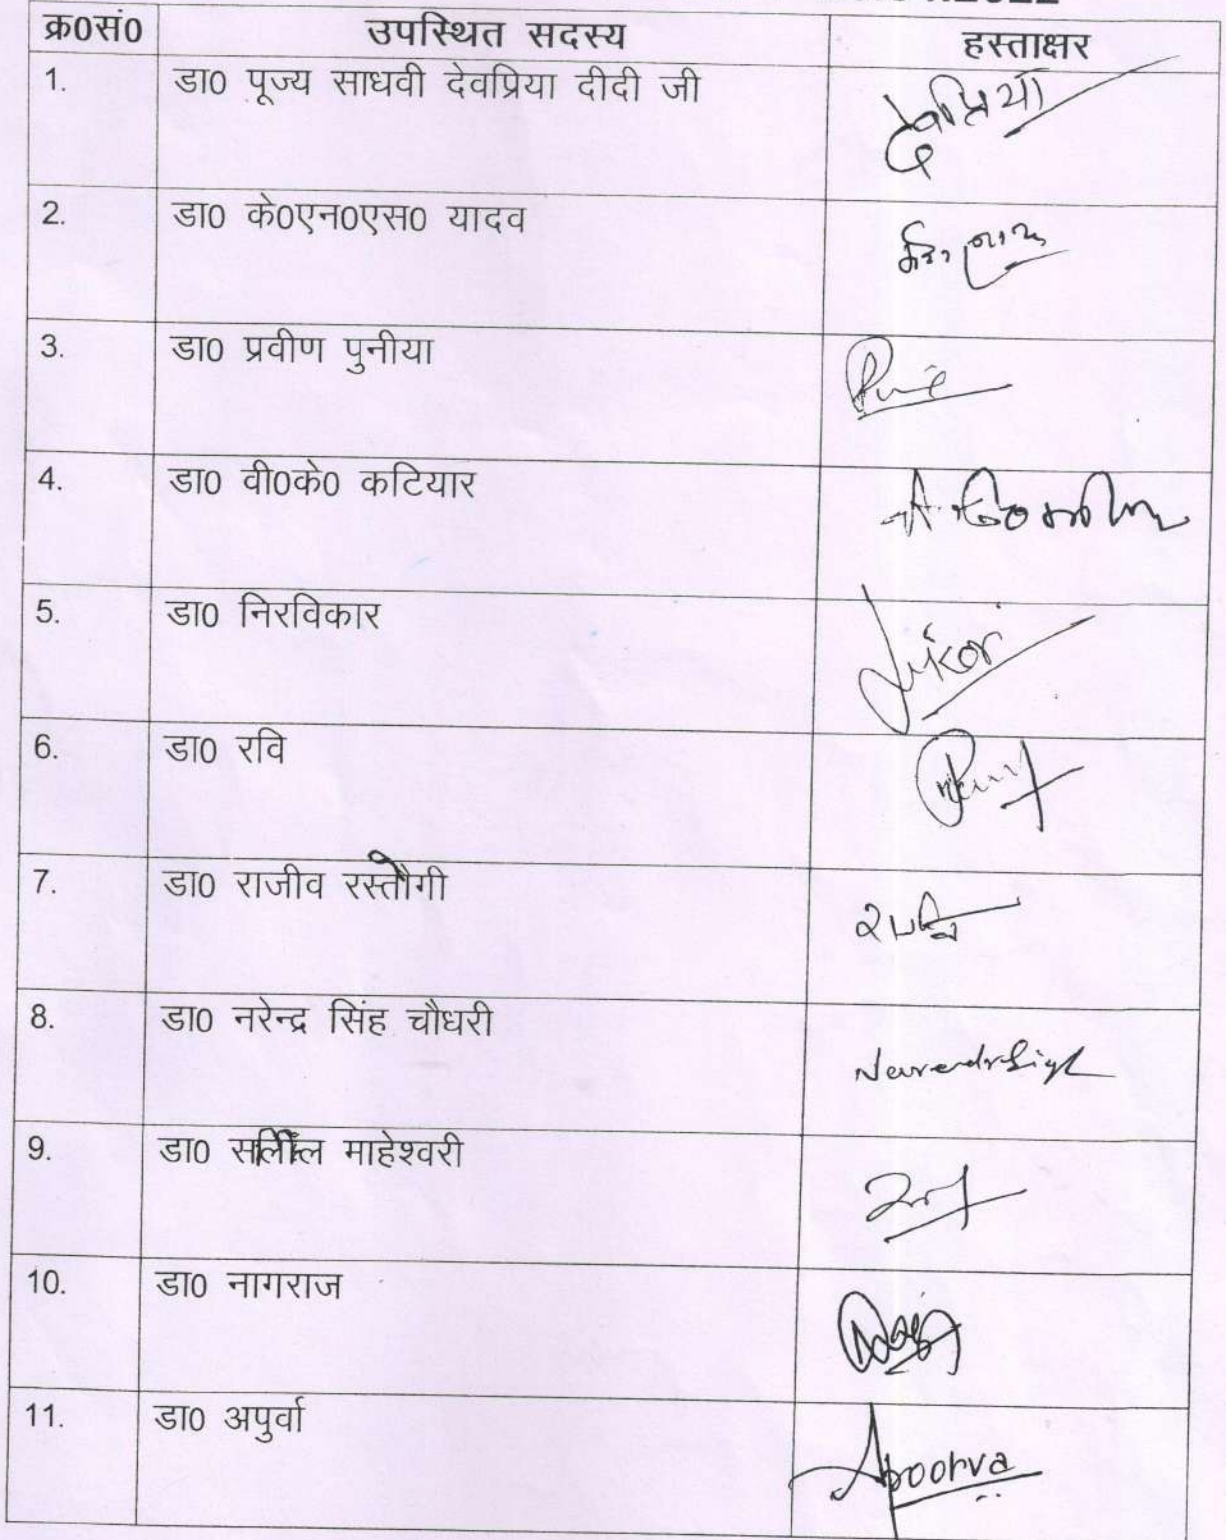 क्र0सं0 उपस्थित सदस्य हस्ताक्षर
1. डा0 पूज्य साधवी देवप्रिया दीदी जी देवप्रिया
2. डा0 के0एन0एस0 यादव
3. डा0 प्रवीण पुनीया
4. डा0 वी0के0 कटियार
5. डा0 निरविकार
6. डा0 रवि
7. डा0 राजीव रस्तौगी
8. डा0 नरेन्द्र सिंह चौधरी Narendra Singh
9. डा0 सलिल माहेश्वरी
10. डा0 नागराज
11. डा0 अपुर्वा Apoorva